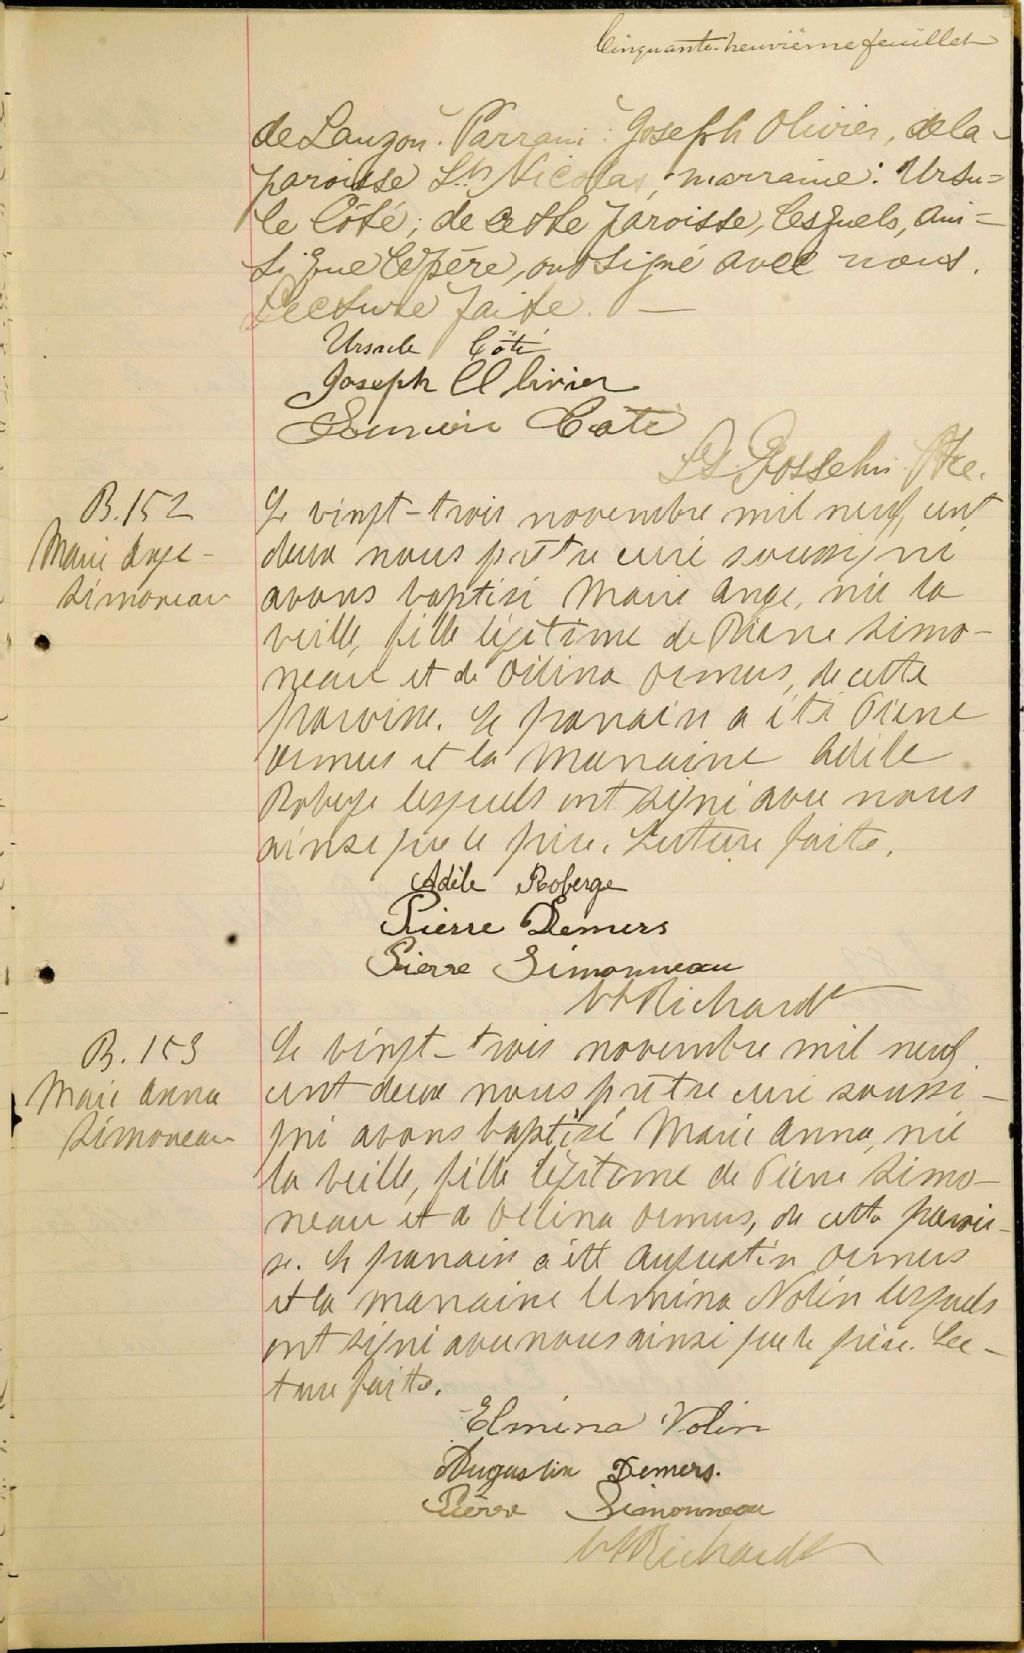 Cinquante-neuvième feuillet
de Lauzon. Parrain: Joseph Olivier, de la
paroisse St. Nicolas, marraine: Ursu=
le Côté, de cette paroisse, lesquels, ain=
si que le père, ont signé avec nous.
Lecture faite. —
Ursule Côté
Joseph Ollivier
Coté
Gosselin Ptre.
B. 152
Marie Ange
Simoneau
Le vingt-trois novembre mil neuf cent
deux nous prêtre curé soussigné
avons baptisé Marie Ange, née la
veille, fille légitime de Pierre Simo-
neau et de Vilina Demers, de cette
paroisse. Le parrain a été Pierre
Demers et la marraine Adèle
Roberge lesquels ont signé avec nous
ainsi que le père. Lecture faite.
Adèle Roberge
Pierre Demers
Pierre Simonneau
Richard
B. 153
Marie Anna
Simoneau
Le vingt-trois novembre mil neuf
cent deux nous prêtre curé soussi-
gné avons baptisé Marie Anna, née
la veille, fille légitime de Pierre Simo-
neau et de Vilina Demers, de cette parois-
se. Le parrain a été Augustin Demers
et la marraine Elmina Nolin lesquels
ont signé avec nous ainsi que le père. Lec-
ture faite.
Elmina Nolin
Augustin Demers.
Pierre Simonneau
Richard